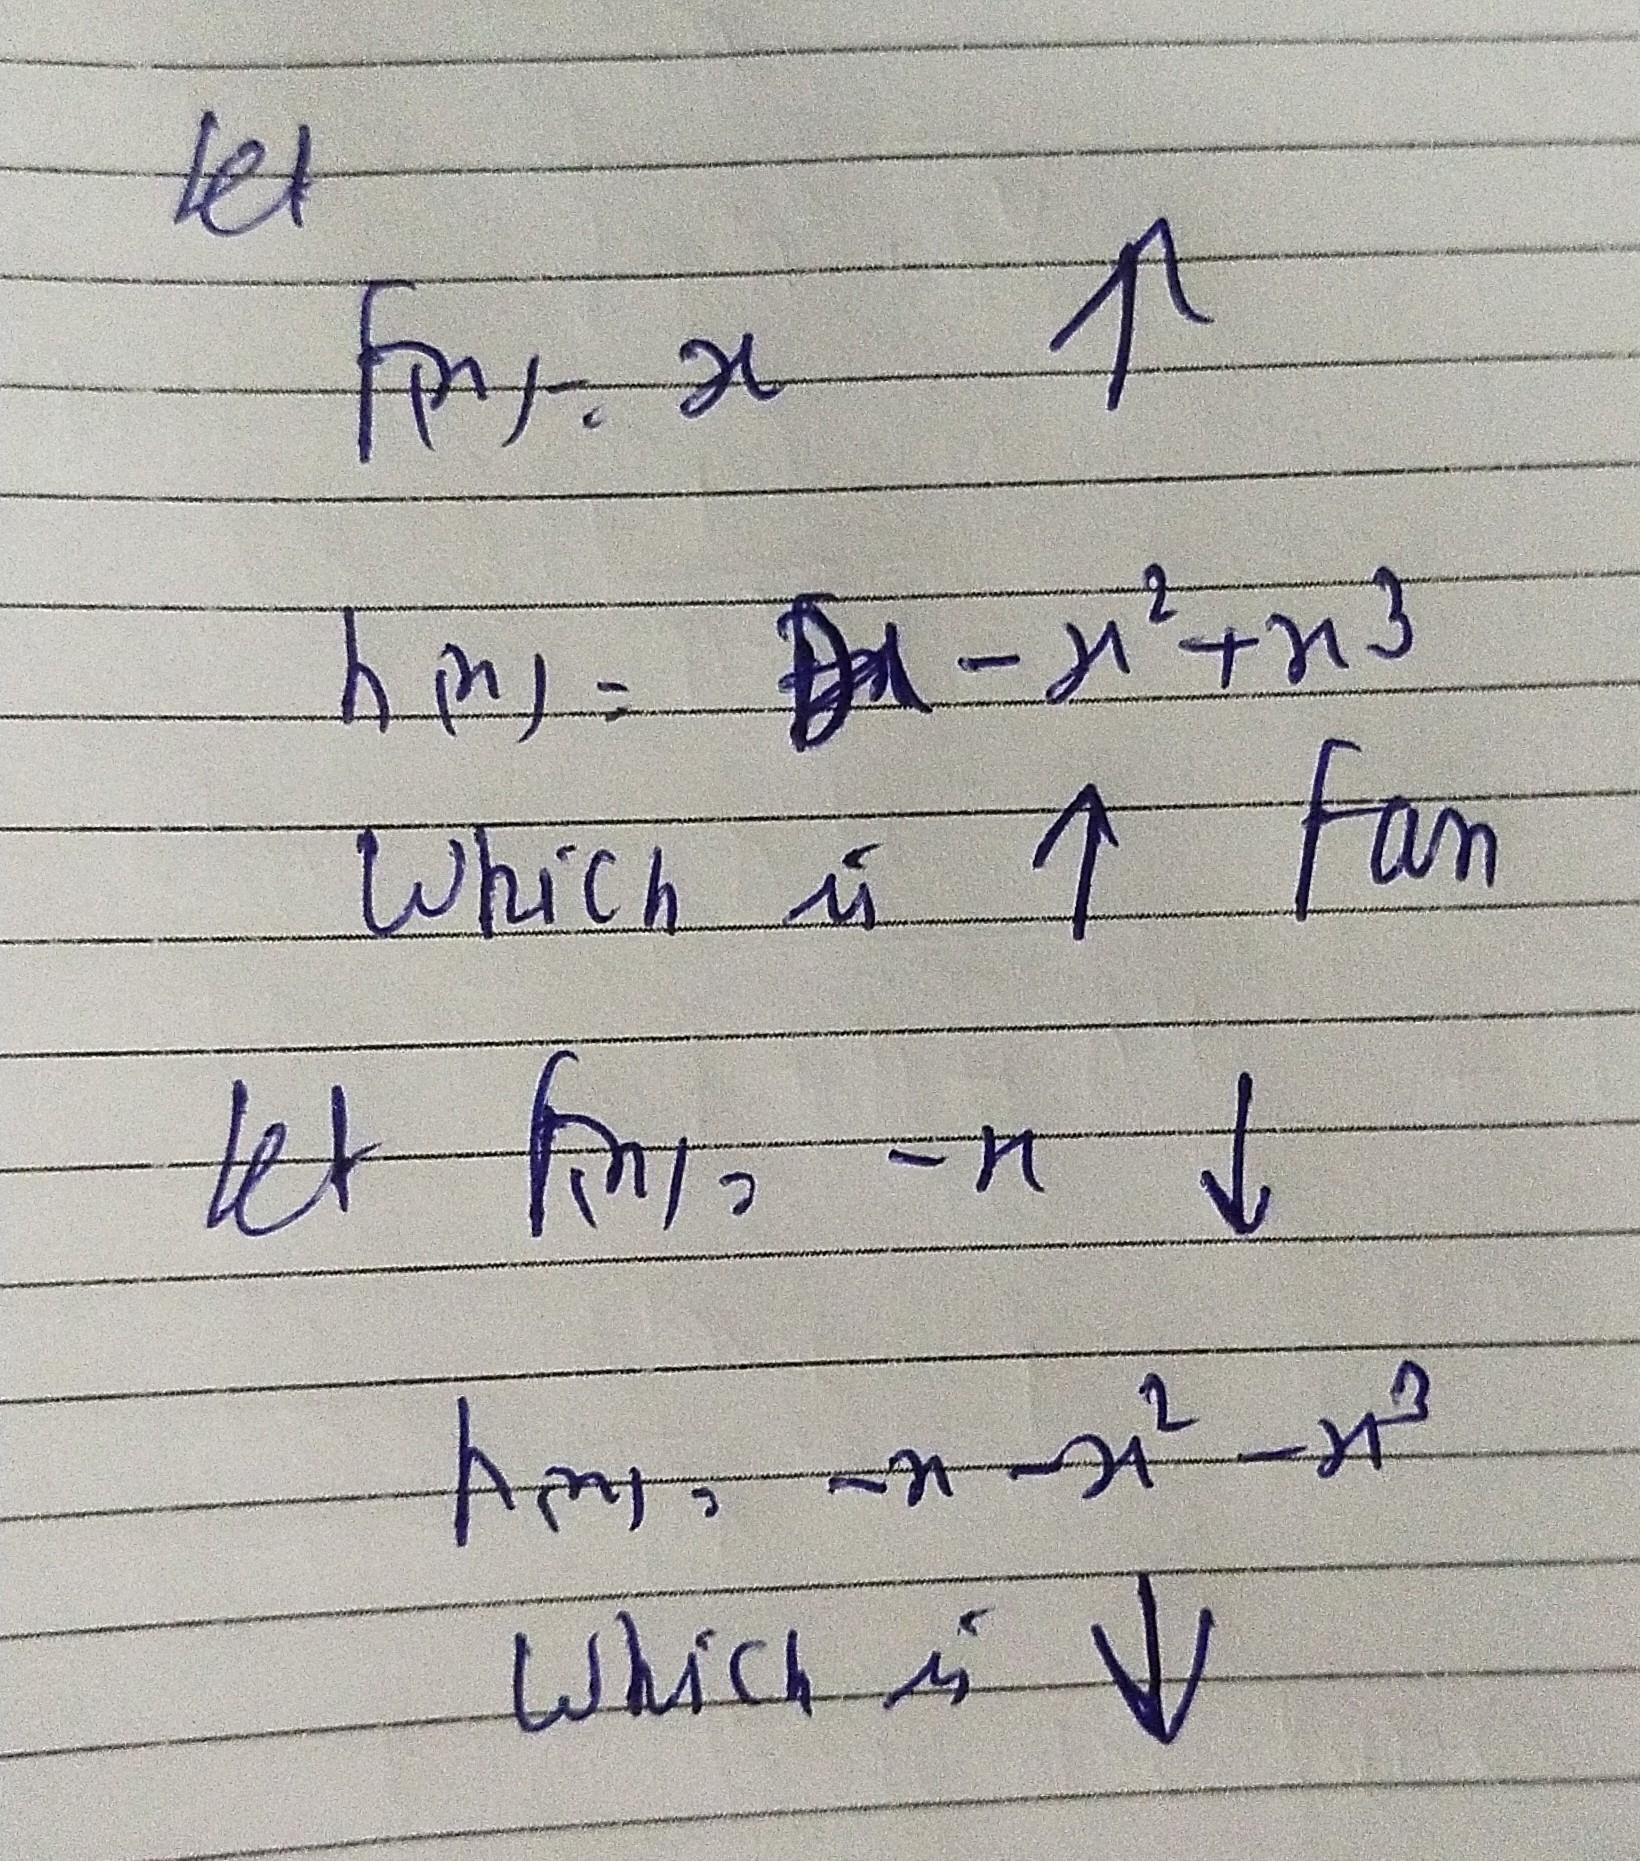 Let
f(x) = x ↑
h(x) = x - x² + x³
Which is ↑ Fan
Let f(x) = -x ↓
h(x) = -x - x² - x³
Which is ↓